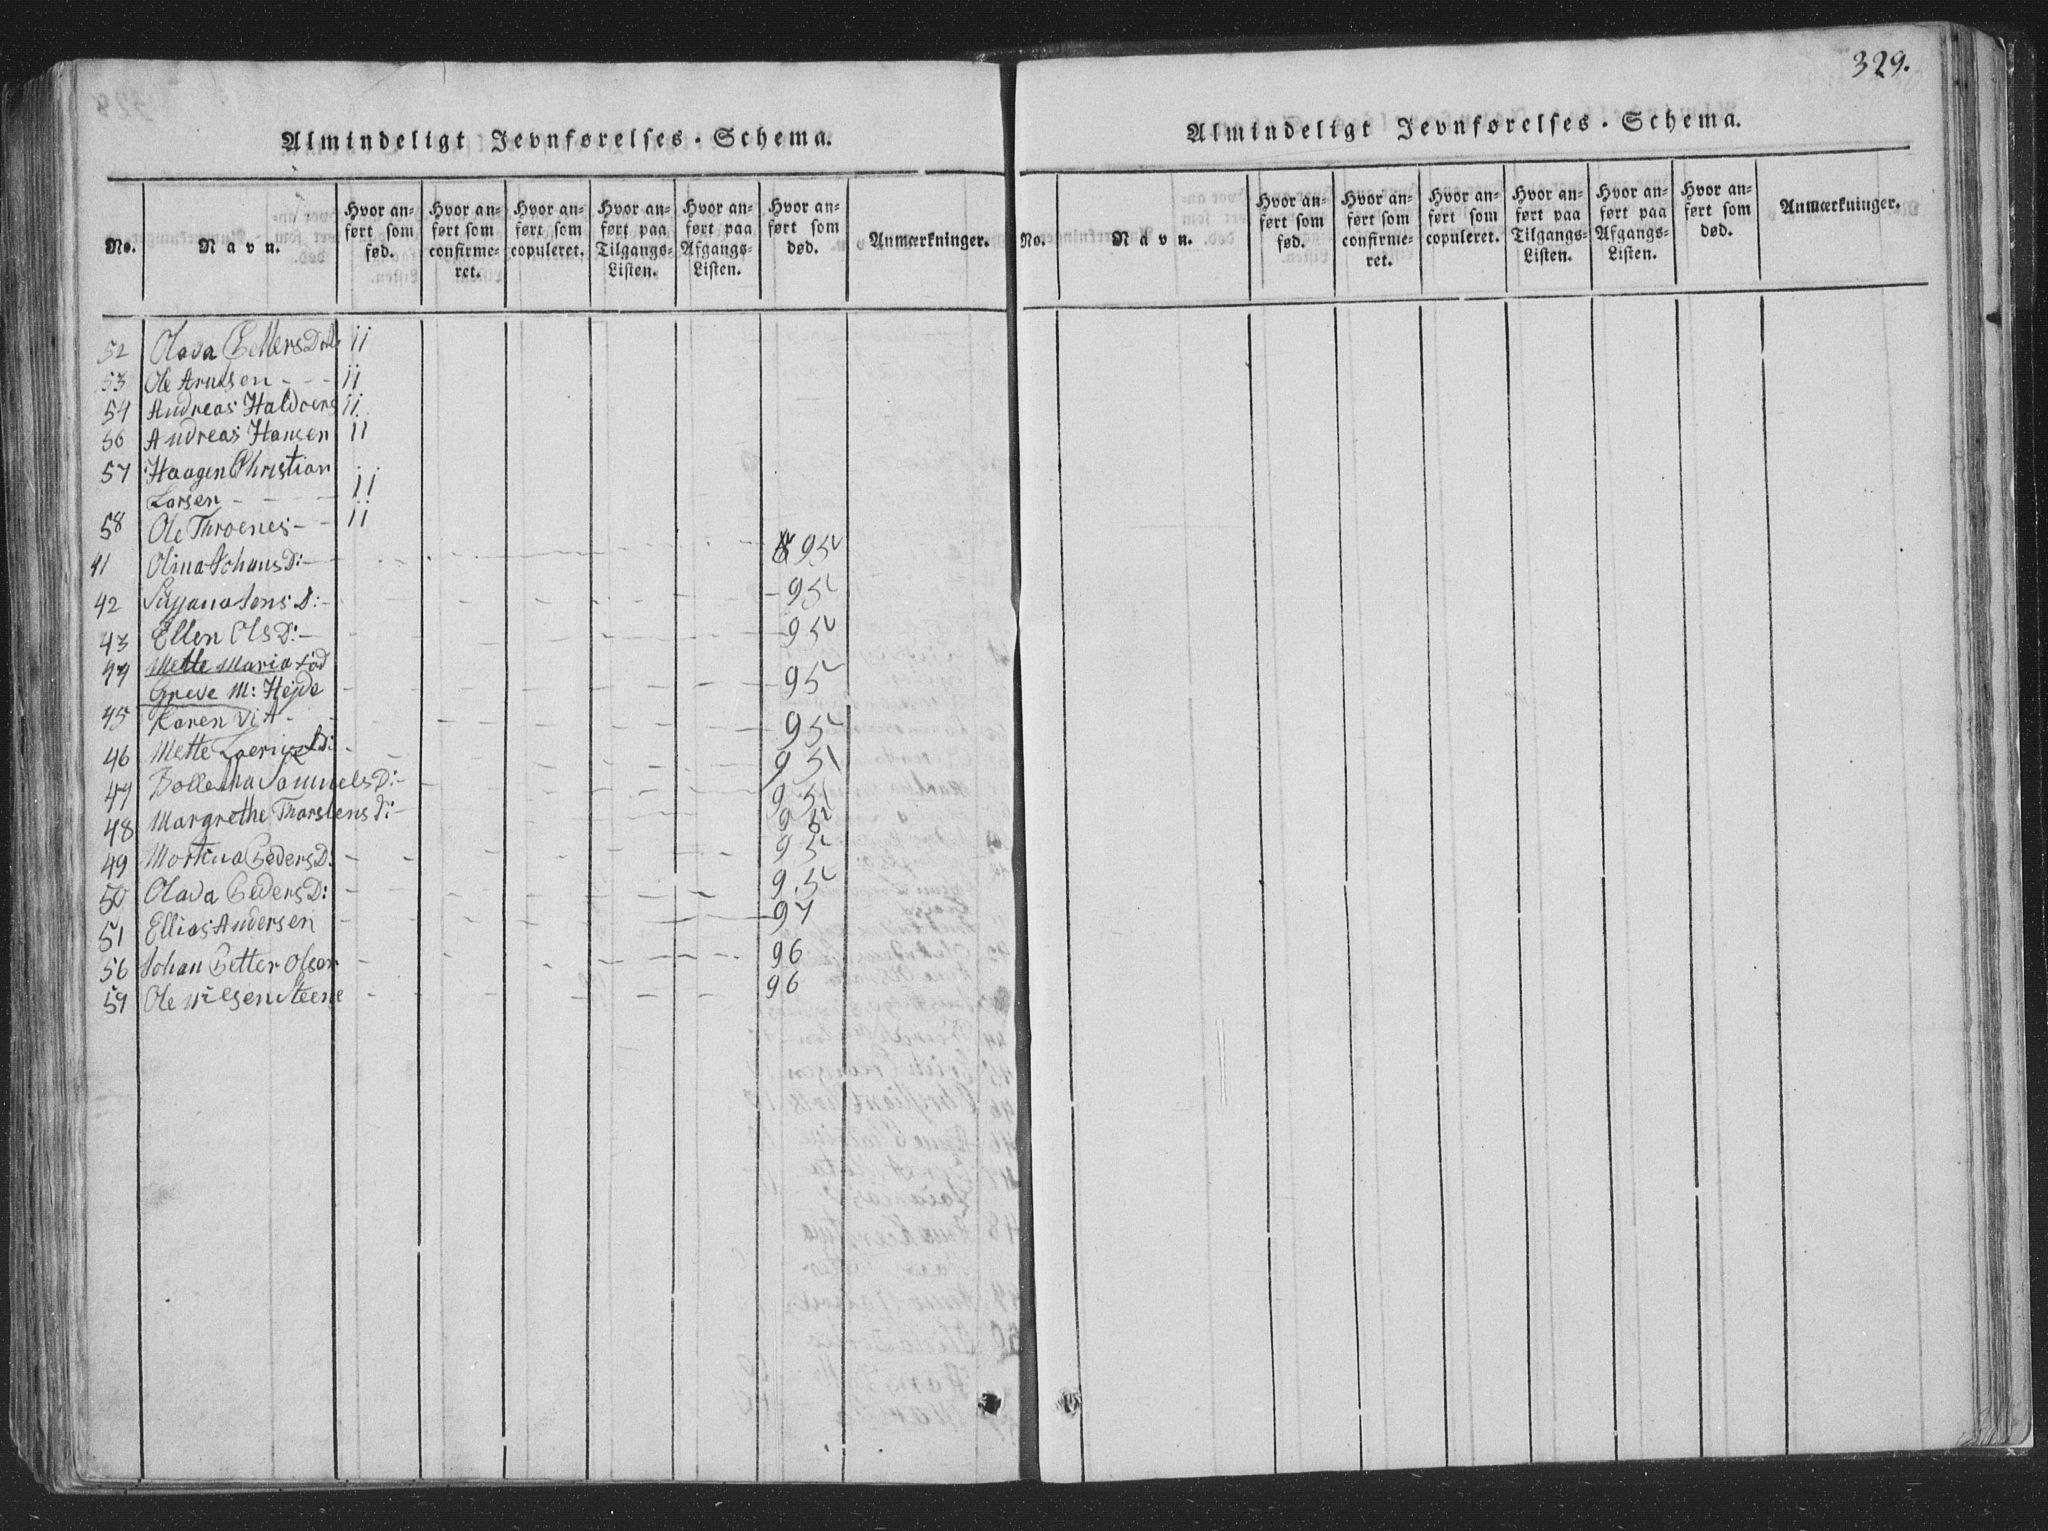 329.
Almindeligt Jevnførelses-Schema.
No.
Navn.
Hvor anført som fød.
Hvor anført som confirmeret.
Hvor anført som copuleret.
Hvor anført paa Tilgangs-Listen.
Hvor anført paa Afgangs-Listen.
Hvor anført som død.
Anmærkninger.
52 Olava 11
53 Ole Arntsen - - - 11
54 Andreas Haldvers 11
56 Andreas Hansen 11
57 Haagen Christian
Larsen - - - - 11
58 Ole Throenes - - 11
41 Olina Johans D:- 95
42 Jens D:- 95
43 Ellen Ols D:- 95
44 Mette Maria fød
Greve M: Hejde 95
45 Karen 95
46 Mette 95
47 Samuels D:- 95
48 Margrethe Thorstens D:- 95
49 Peders D: 95
50 Olava Peders D: 95
51 Ellias Andersen 97
56 Johan Petter Olsen 96
59 Ole Nilsen Steene 96
Almindeligt Jevnførelses-Schema.
No.
Navn.
Hvor anført som fød.
Hvor anført som confirmeret.
Hvor anført som copuleret.
Hvor anført paa Tilgangs-Listen.
Hvor anført paa Afgangs-Listen.
Hvor anført som død.
Anmærkninger.